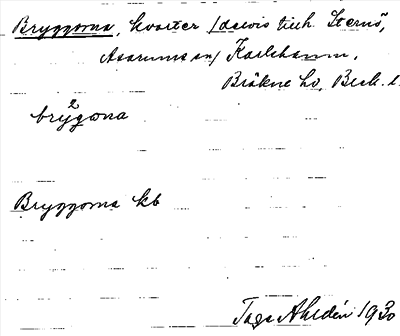 Bryggorna, kvarter / delvis till h. Sternö,
Asarums sn / Karlshamn,
Bräkne hd, Blek. l.
2
brýgꞷna
Bryggorna kb
Tage Ahldén 1930